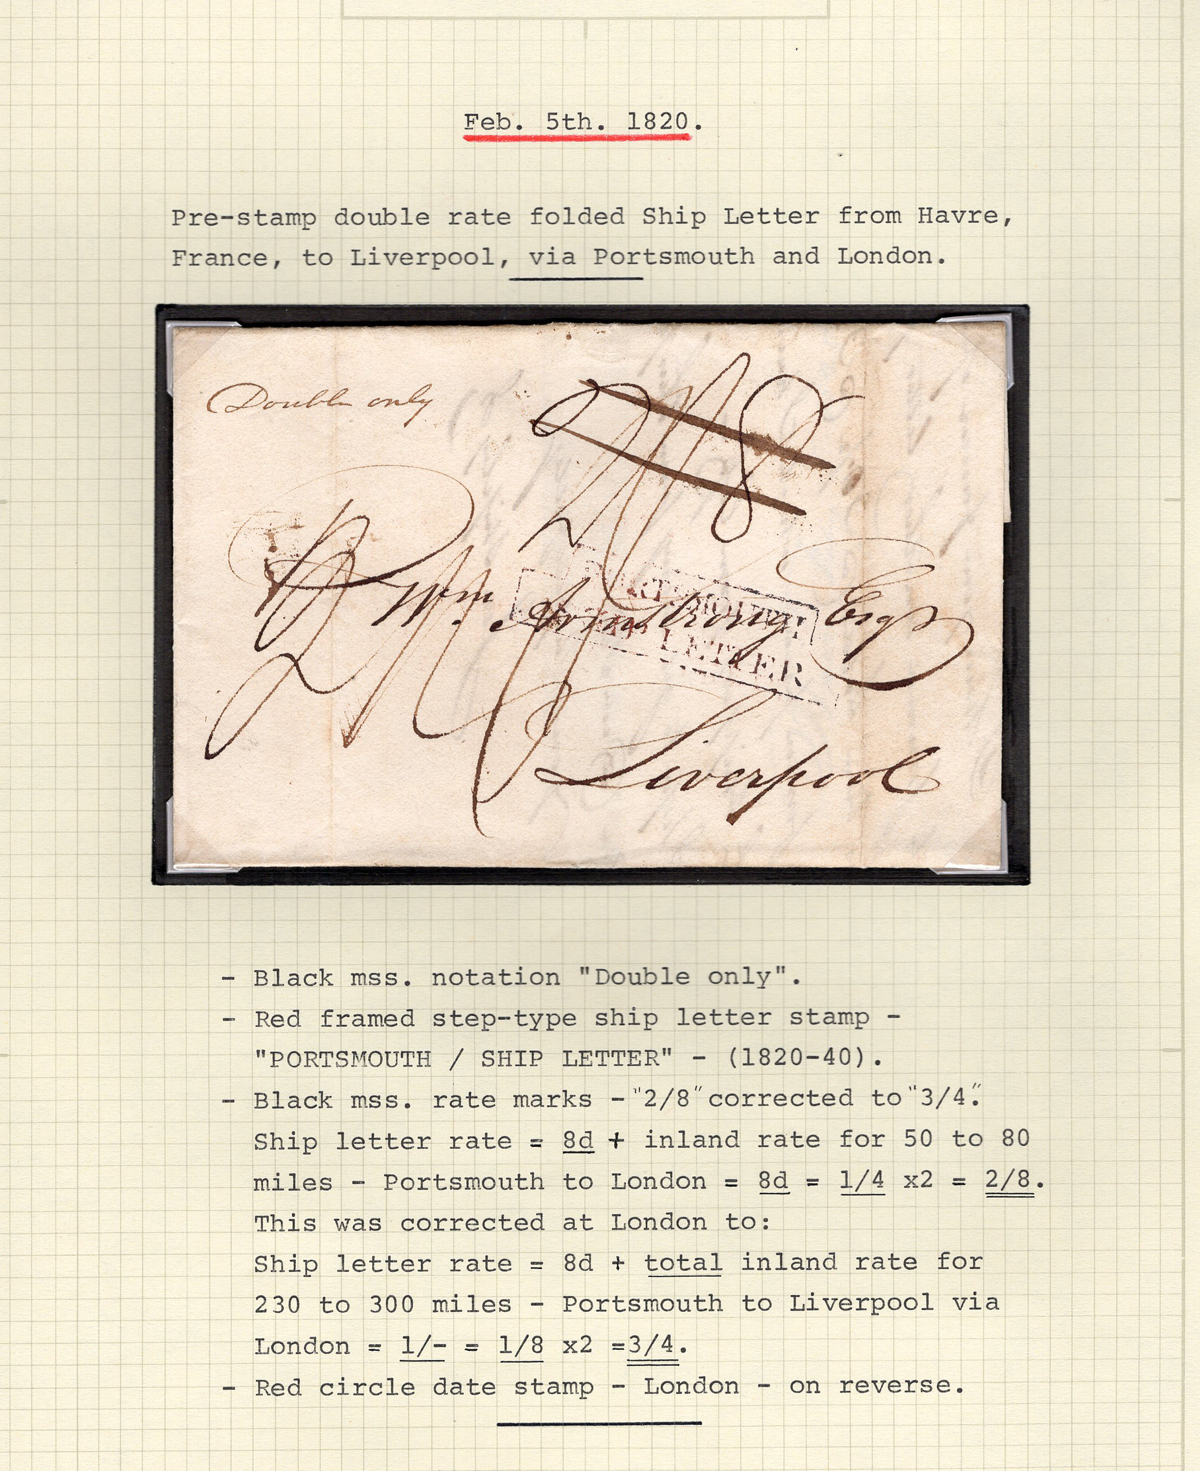 Feb. 5th. 1820.
Pre-stamp double rate folded Ship Letter from Havre,
France, to Liverpool, via Portsmouth and London.
Double only
2/8
PORTSMOUTH
SHIP LETTER
Wm. Armstrong Esqr
Liverpool
- Black mss. notation "Double only".
- Red framed step-type ship letter stamp -
"PORTSMOUTH / SHIP LETTER" - (1820-40).
- Black mss. rate marks - "2/8" corrected to "3/4".
Ship letter rate = 8d + inland rate for 50 to 80
miles - Portsmouth to London = 8d = 1/4 x2 = 2/8.
This was corrected at London to:
Ship letter rate = 8d + total inland rate for
230 to 300 miles - Portsmouth to Liverpool via
London = 1/- = 1/8 x2 =3/4.
- Red circle date stamp - London - on reverse.